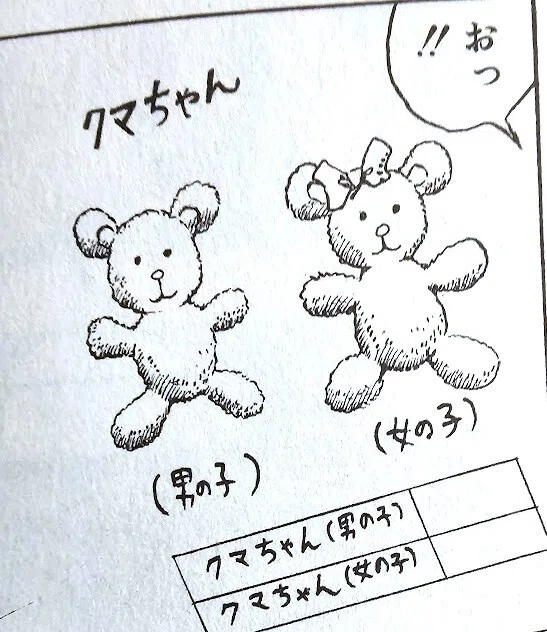 おっ
!!
クマちゃん
(男の子)
(女の子)
クマちゃん(男の子)
クマちゃん(女の子)